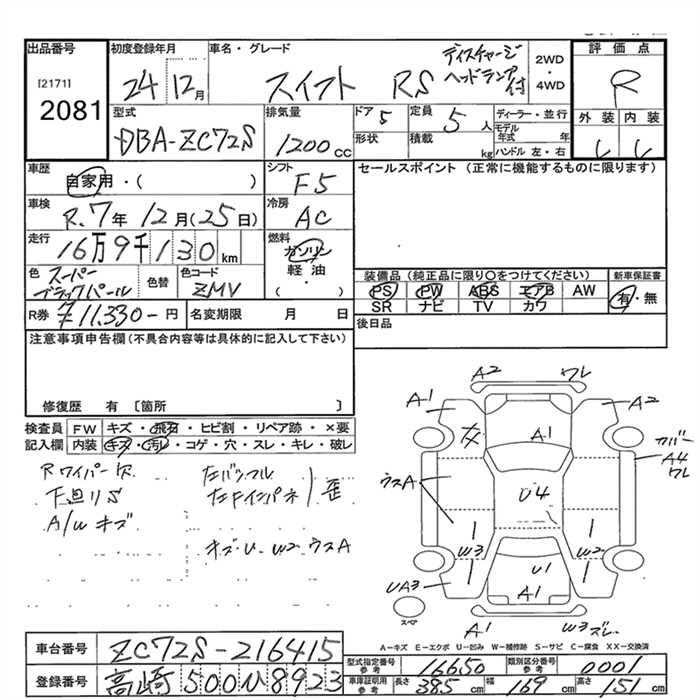 出品番号 [2171] 2081
初度登録年月 24 12月
車名・グレード スイフト RS ディスチャージヘッドランプ付
2WD・4WD
評価点 R
外装 内装
型式 DBA-ZC72S
排気量 1200cc
ドア 5 定員 5人
形状 積載 kg
ディーラー・並行
モデル年式 年
ハンドル 左・右
車歴 自家用・( )
シフト F5
セールスポイント (正常に機能するものに限ります)
車検 R.7年 12月(25日)
冷房 AC
走行 16万9千130km
燃料 ガソリン 軽油 ( ・ )
色 スーパーブラックパール 色替 色コード ZMV
装備品 (純正品に限り○をつけてください) 新車保証書
PS PW ABS エアB AW 有・無
SR ナビ TV カワ
R券 ¥11,330-円 名変期限 月 日
後日品
注意事項申告欄(不具合内容等は具体的に記入して下さい)
修復歴 有 〔箇所 〕
検査員 FW キズ・飛石・ヒビ割・リペア跡・×要
記入欄 内装 キズ・汚レ・コゲ・穴・スレ・キレ・破レ
Rワイパー欠
下廻りS
A/W キズ
左Fインパネ 歪
キズ・U W2 ウスA
A2 ワレ
A1 A2
A1
カバー A4 ワレ
ウスA
U4
W3 W2
U1
UA3 A1
スペア
A1 W3 ズレ
A-キズ E-エクボ U-凹み W-補修跡 S-サビ C-腐食 XX-交換済
車台番号 ZC72S-216415
型式指定番号 参考 16650 類別区分番号 参考 0001
登録番号 高崎 500 N 8923
車庫証明用 参考 長さ 385cm 幅 169cm 高さ 151cm